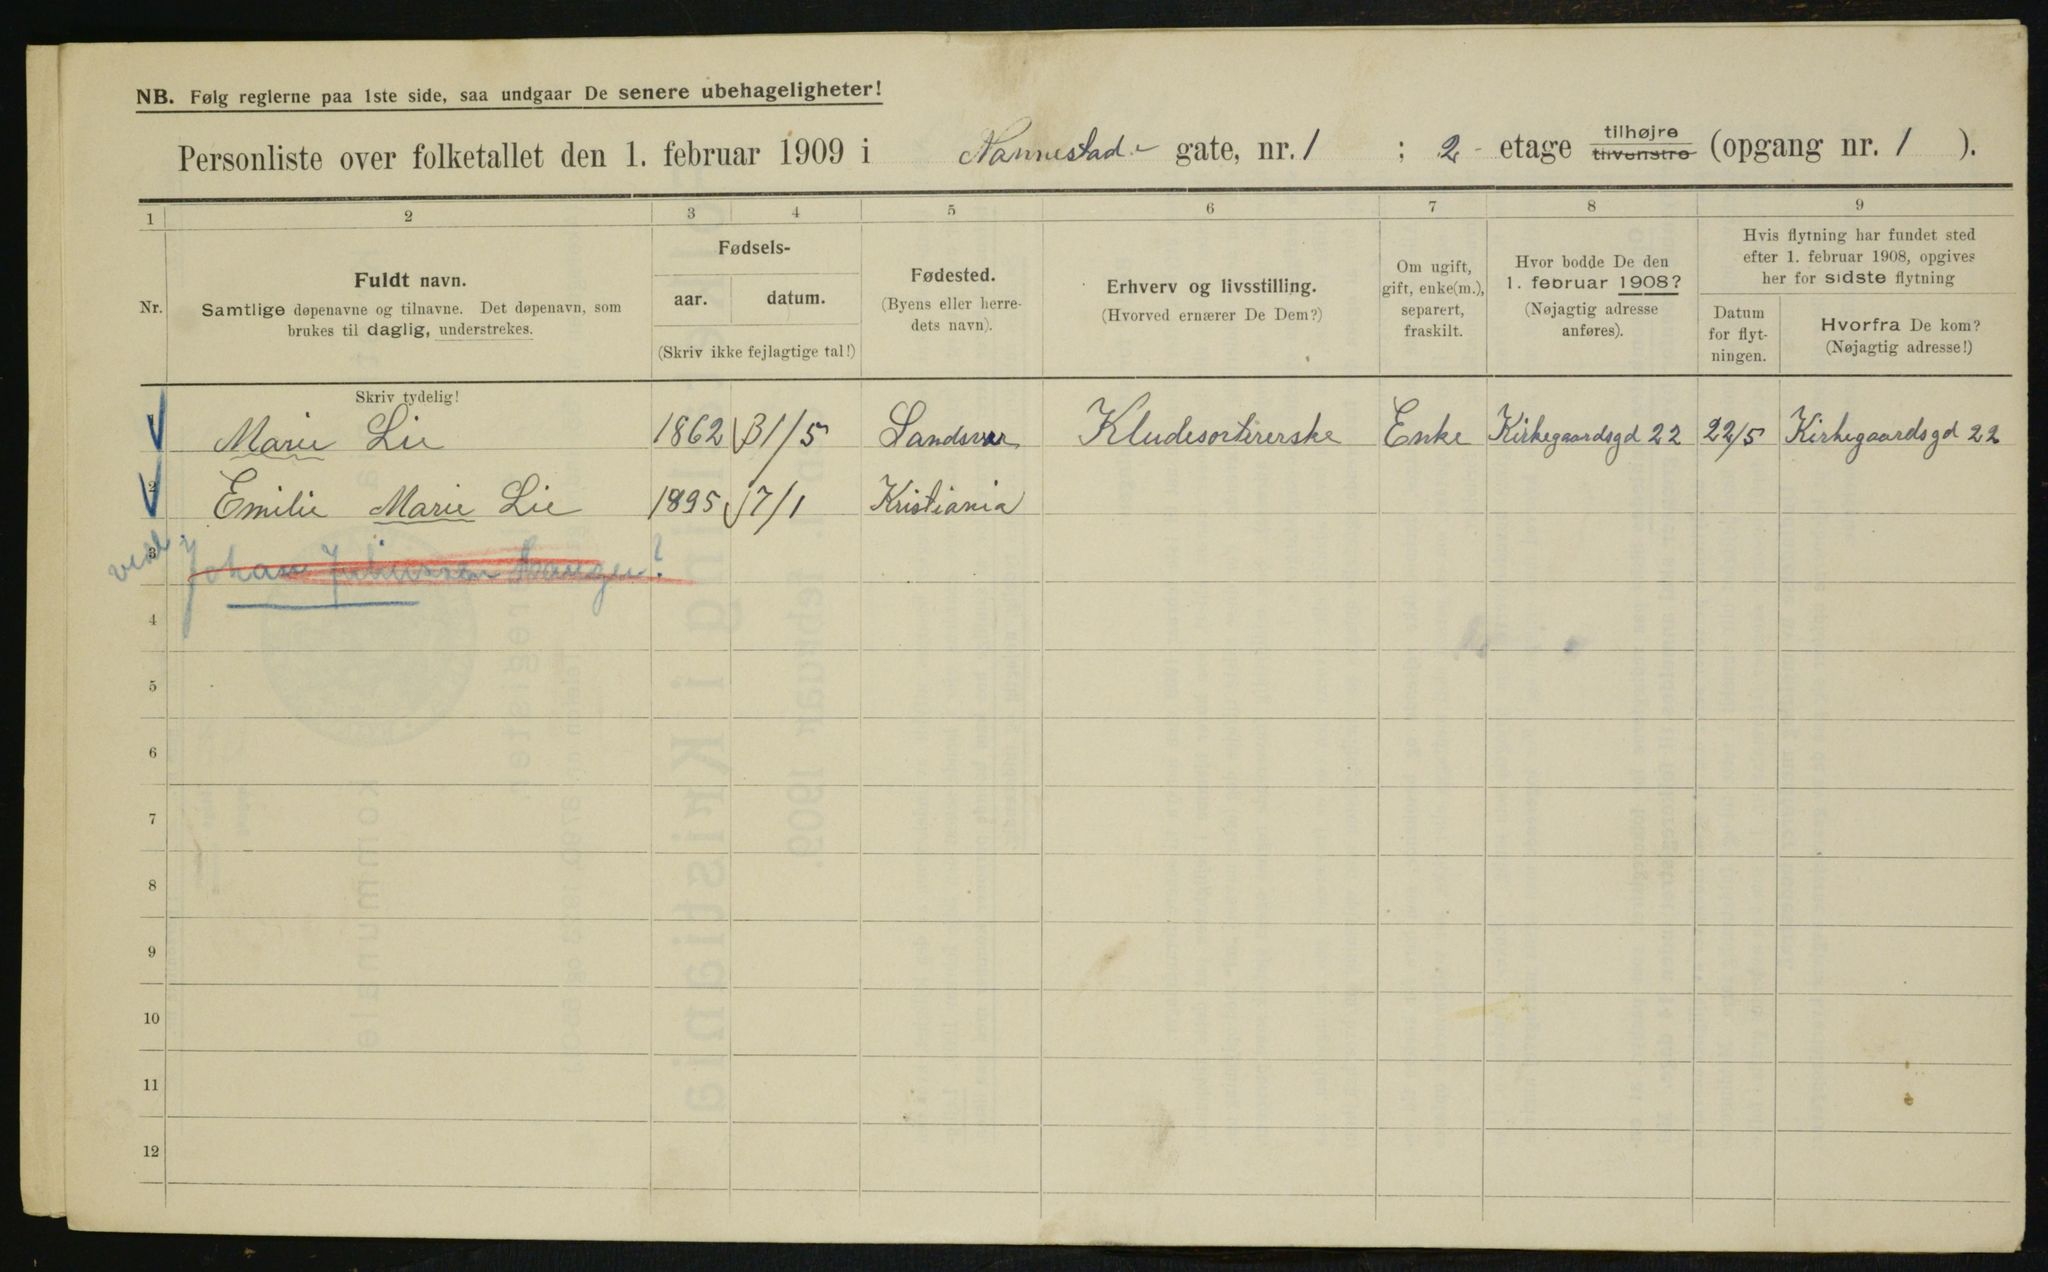 NB. Følg reglerne paa 1ste side, saa undgaar De senere ubehageligheter!
Personliste over folketallet den 1. februar 1909 i Nannestad.- gate, nr. 1 ; 2 - etage tilhøjre tilvenstre (opgang nr. 1 ).
1 2 3 4 5 6 7 8 9
Nr.
Fuldt navn.
Samtlige døpenavne og tilnavne. Det døpenavn, som
brukes til daglig, understrekes.
Fødsels-
aar. datum.
(Skriv ikke fejlagtige tal!)
Fødested.
(Byens eller herre-
dets navn).
Erhverv og livsstilling.
(Hvorved ernærer De Dem?)
Om ugift,
gift, enke(m.),
separert,
fraskilt.
Hvor bodde De den
1. februar 1908?
(Nøjagtig adresse
anføres).
Hvis flytning har fundet sted
efter 1. februar 1908, opgives
her for sidste flytning
Datum
for flyt-
ningen.
Hvorfra De kom?
(Nøjagtig adresse!)
Skriv tydelig!
Marie Lie 1862 31/5 Sandsvær Kludesortererske Enke Kirkegaardsgd 22 22/5 Kirkegaardsgd 22
2 Emilie Marie Lie 1895 7/1 Kristiania
3 Johan ?
4
5
6
7
8
9
10
11
12